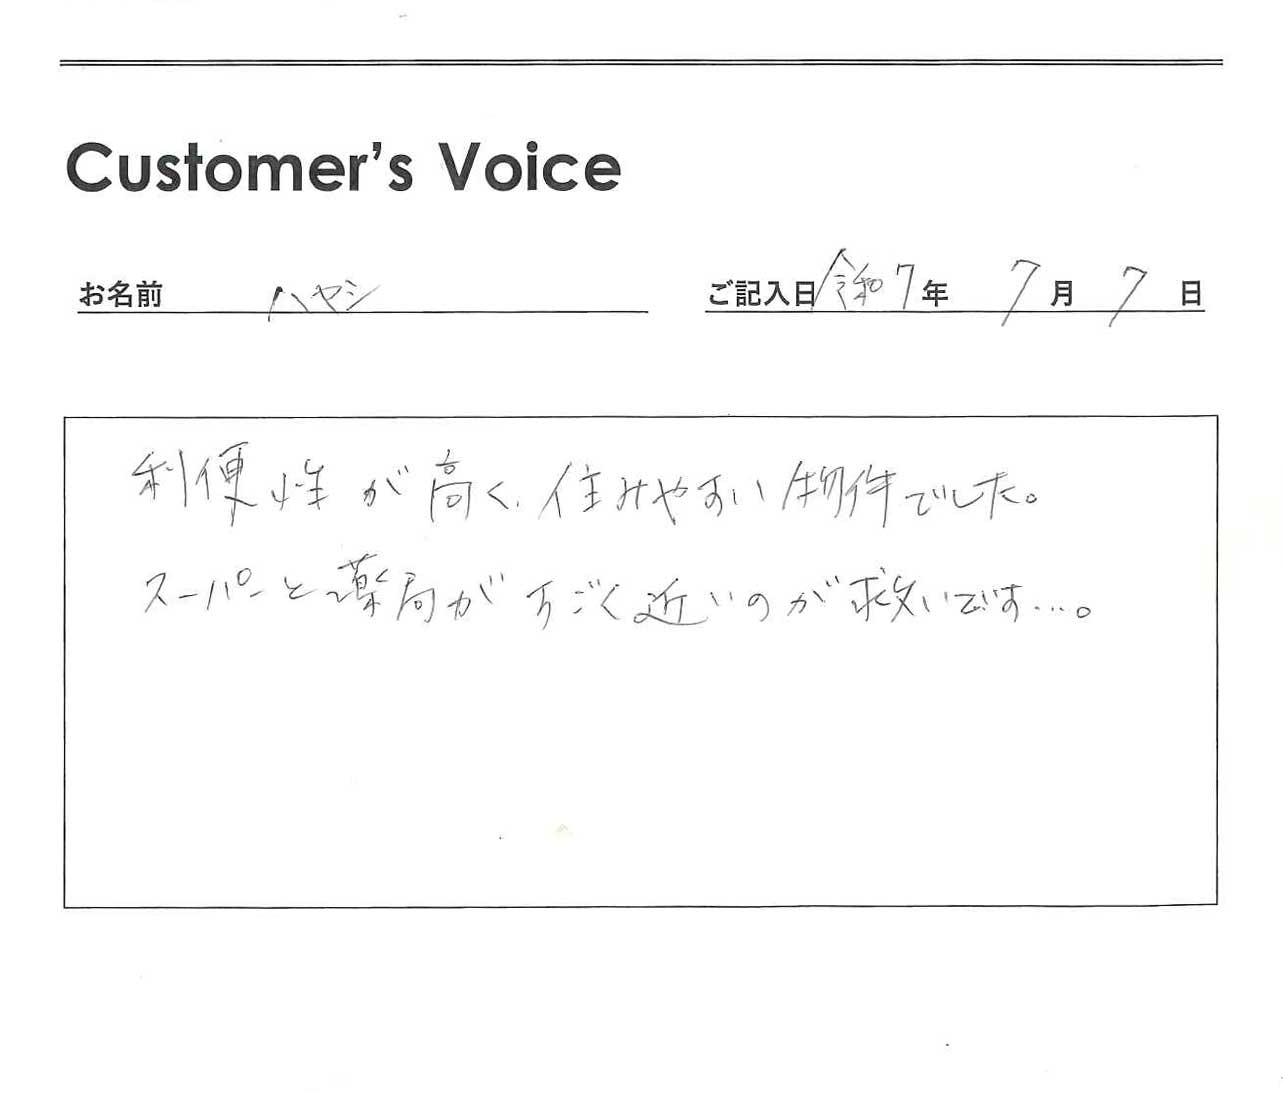 Customer's Voice
お名前 ハヤシ ご記入日 令和7年 7月 7日
利便性が高く、住みやすい物件でした。
スーパーと薬局がすごく近いのが救いです…。